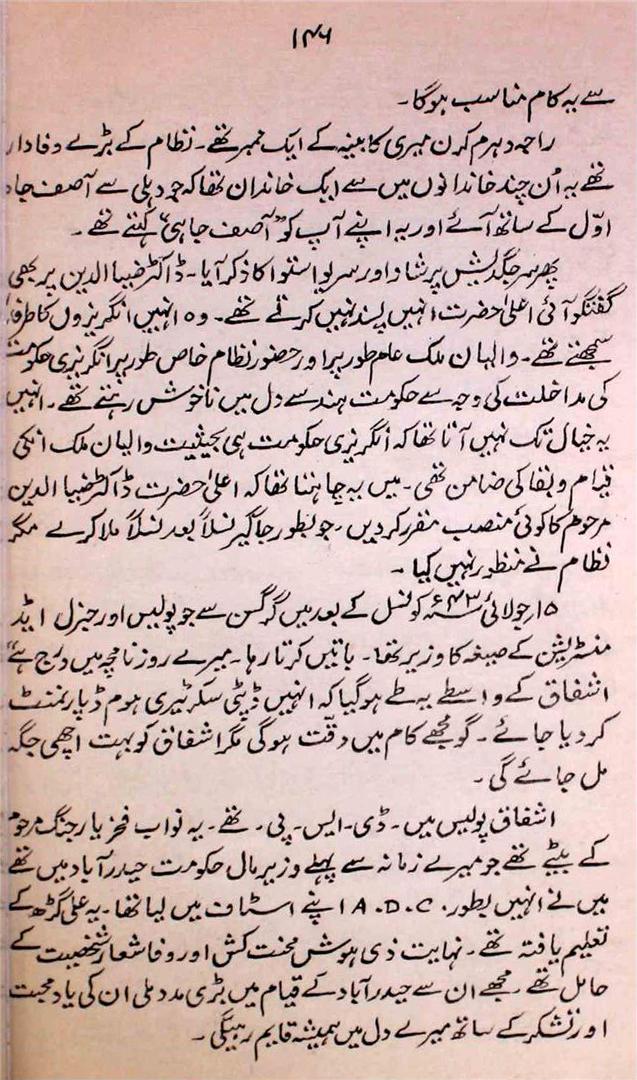 ۱۴۶
سے یہ کام مناسب ہوگا۔
راجہ دھرم کرن میری کابینہ کے ایک ممبر تھے۔ نظام کے بڑے وفادار
تھے یہ اُن چند خاندانوں میں سے ایک خاندان تھا کہ جو دہلی سے آصف جاہ
اوّل کے ساتھ آئے اور یہ اپنے آپ کو “آصف جاہی” کہتے تھے۔
پھر سر جگدیش پرشاد اور سریواستوا کا ذکر آیا۔ ڈاکٹر ضیا الدین پر بھی
گفتگو آئی اعلیٰ حضرت انہیں پسند نہیں کرتے تھے۔ وہ انہیں انگریزوں کا طرفدار
سمجھتے تھے۔ والیان ملک عام طور پر اور حضور نظام خاص طور پر انگریزی حکومت
کی مداخلت کی وجہ سے حکومت ہند سے دل میں ناخوش رہتے تھے۔ انہیں
یہ خیال تک نہیں آتا تھا کہ انگریزی حکومت ہی بحیثیت والیان ملک انکی
قیام و بقا کی ضامن تھی۔ میں یہ چاہتا تھا کہ اعلیٰ حضرت ڈاکٹر ضیا الدین
مرحوم کا کوئی منصب مقرر کر دیں۔ جو بطور جاگیر نسلاً بعد نسلاً ملا کرے مگر
نظام نے منظور نہیں کیا۔
۱۵ جولائی ۴۳ء کونسل کے بعد میں گرگسن سے جو پولیس اور جنرل ایڈ
منسٹریشن کے صیغہ کا وزیر تھا۔ باتیں کرتا رہا۔ میرے روزنامچہ میں درج ہے
اشفاق کے واسطے یہ طے ہو گیا کہ انہیں ڈپٹی سکرٹیری ہوم ڈپارٹمنٹ
کر دیا جائے۔ گو مجھے کام میں دقّت ہوگی مگر اشفاق کو بہت اچھی جگہ
مل جائے گی۔
اشفاق پولیس میں۔ ڈی۔ ایس۔ پی۔ تھے۔ یہ نواب فخر یار جنگ مرحوم
کے بیٹے تھے جو میرے زمانہ سے پہلے وزیر مال حکومت حیدر آباد میں تھے
میں نے انہیں بطور A.D.C. اپنے اسٹاف میں لیا تھا۔ یہ علی گڑھ کے
تعلیم یافتہ تھے۔ نہایت ذی ہوش محنت کش اور وفا شعار شخصیت کے
حامل تھے۔ مجھے ان سے حیدر آباد کے قیام میں بڑی مدد ملی ان کی یاد محبت
اور تشکر کے ساتھ میرے دل میں ہمیشہ قایم رہیگی۔